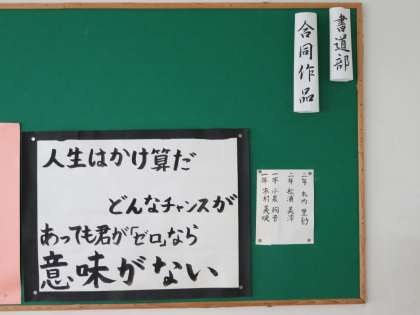 書道部
合同作品
人生はかけ算だ
どんなチャンスが
あっても君が「ゼロ」なら
意味がない
二年 木内
二年 松浦
一年 小泉
一年 木村